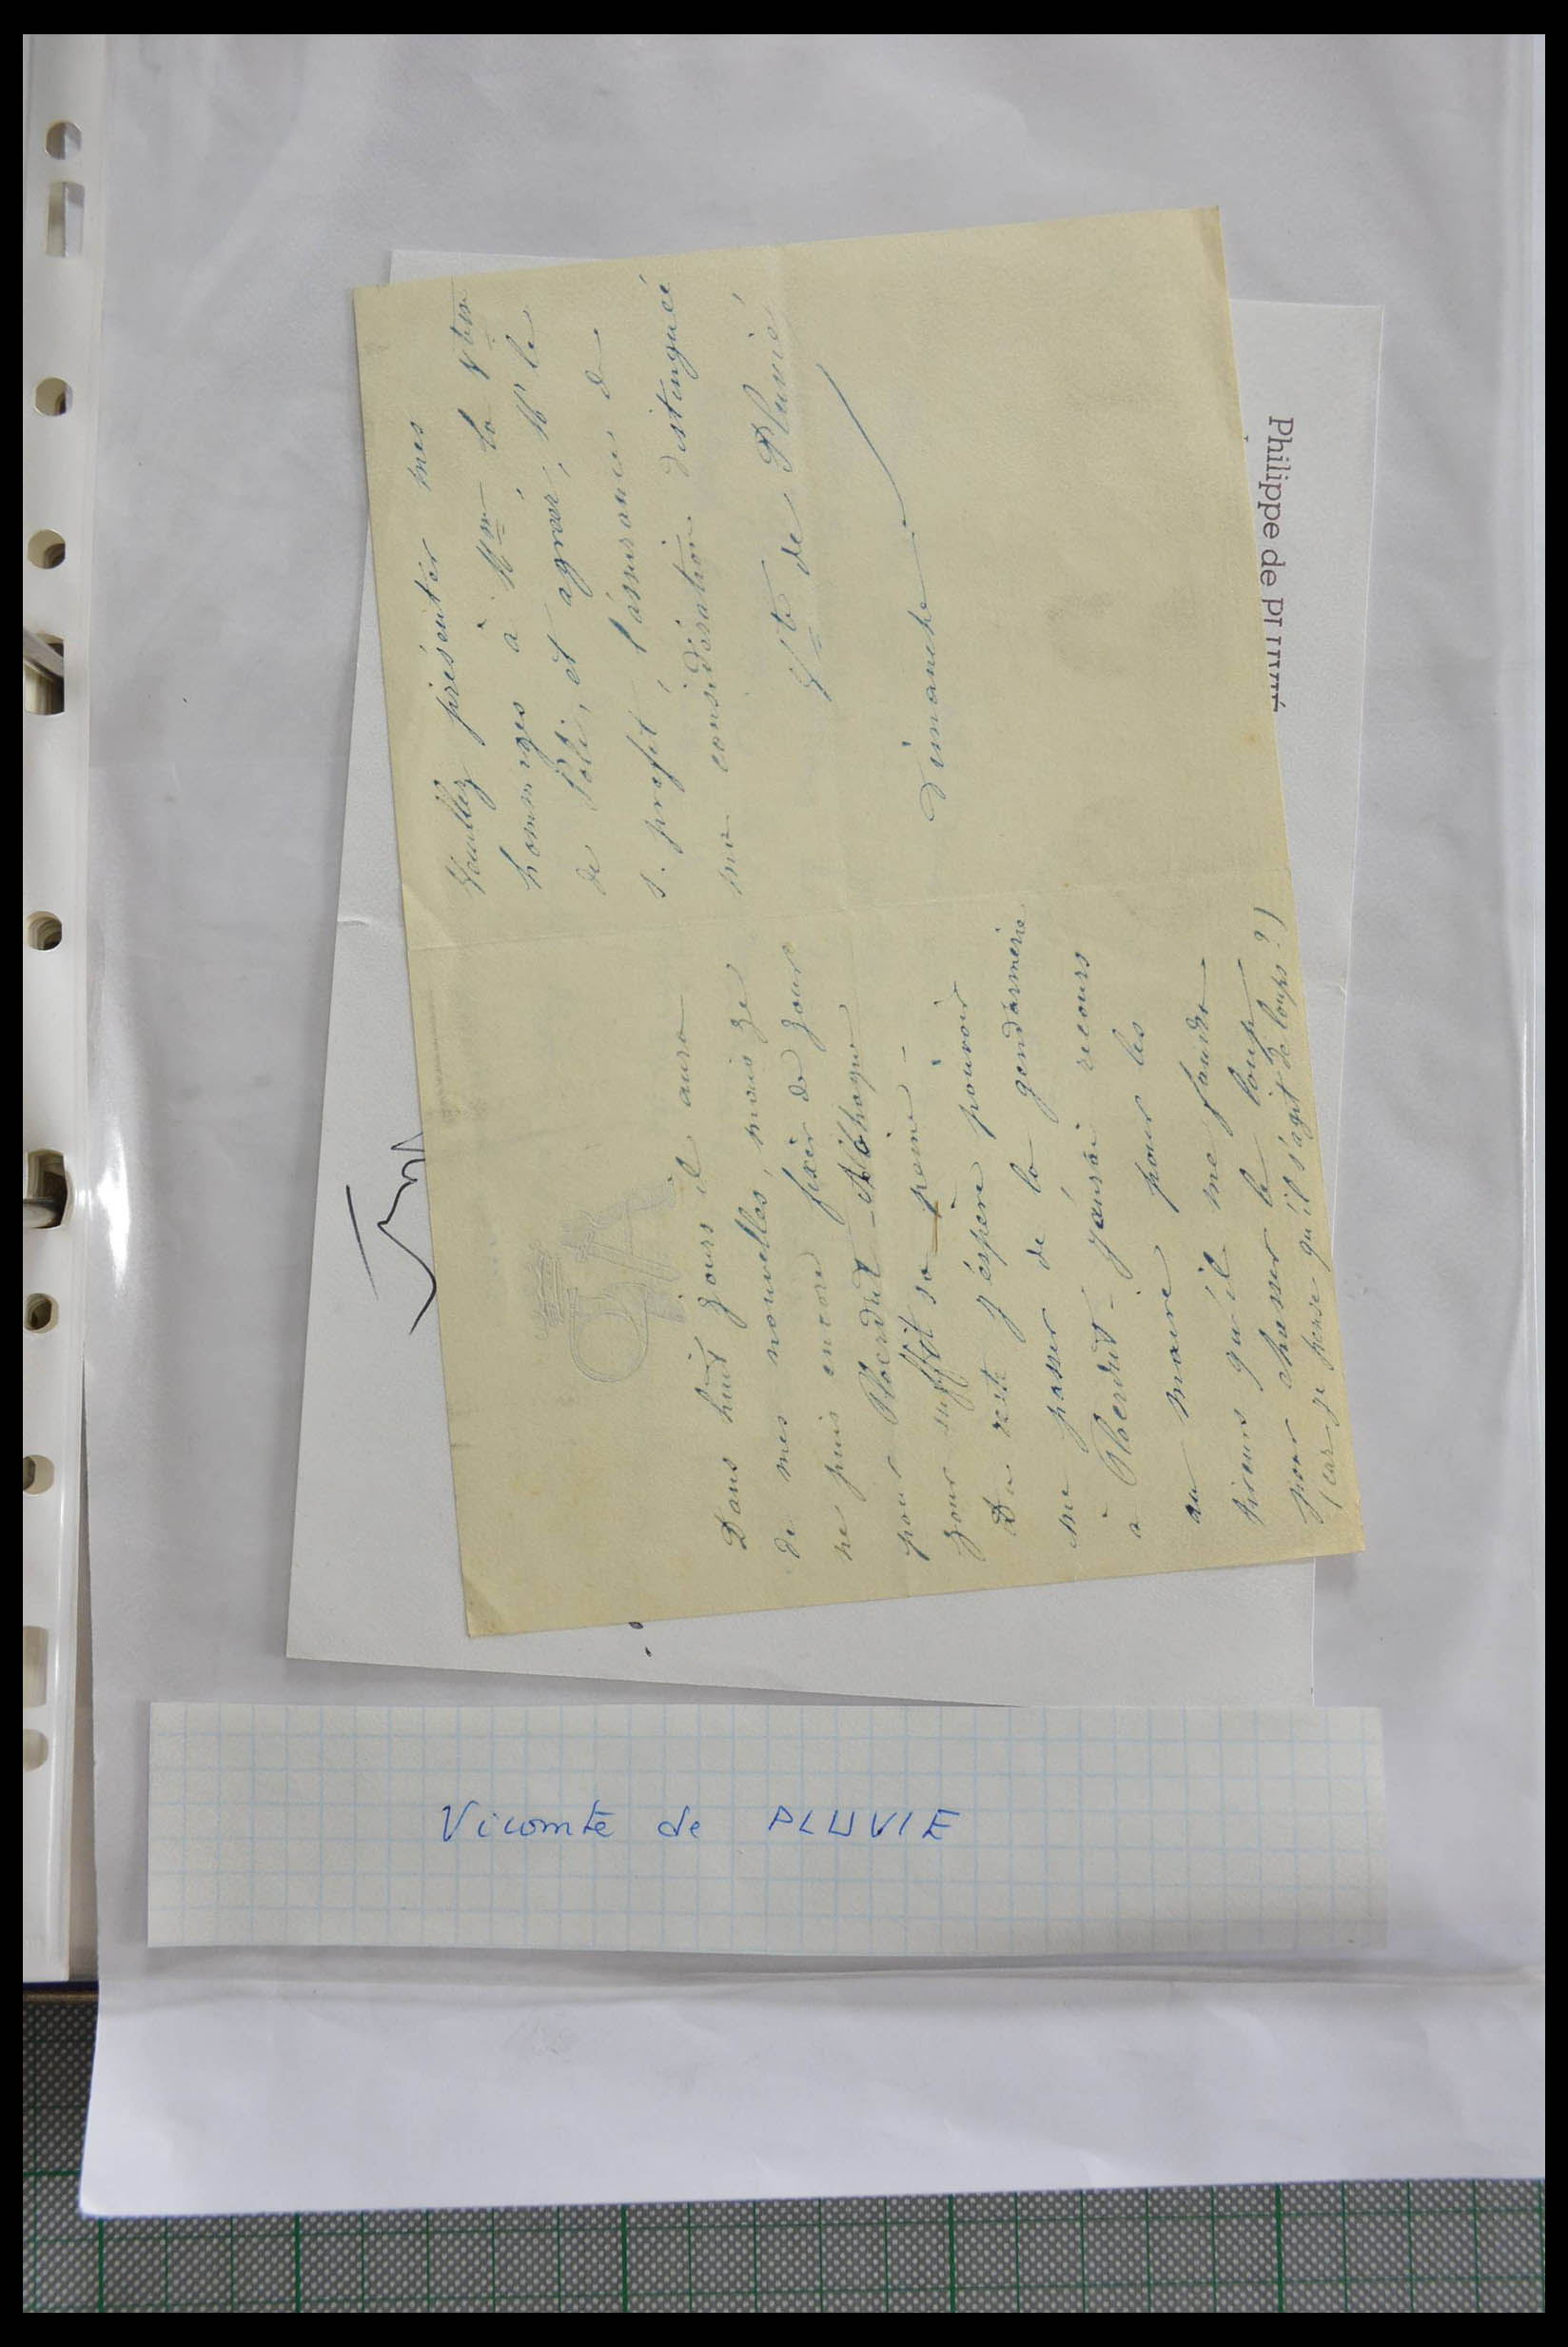 Dans huit jours il aura
de mes nouvelles, mais je
ne puis encore fixer de jour
pour Ploerdut
jour suffit sa peine -
Du reste j'espère pouvoir
me passer de la gendarmerie
à Ploerdut - j'aurai recours
au maire pour les
qu'il me faudra
pour chasser le loup
(car je pense qu'il s'agit de loups ?)
Veuillez présenter mes
hommages à Mme la Vtesse
de Poli, et agréer, Mr le
l'assurance de
ma considération distinguée
Vte de Pluvié
Dimanche.
Philippe de
Vicomte de PLUVIE